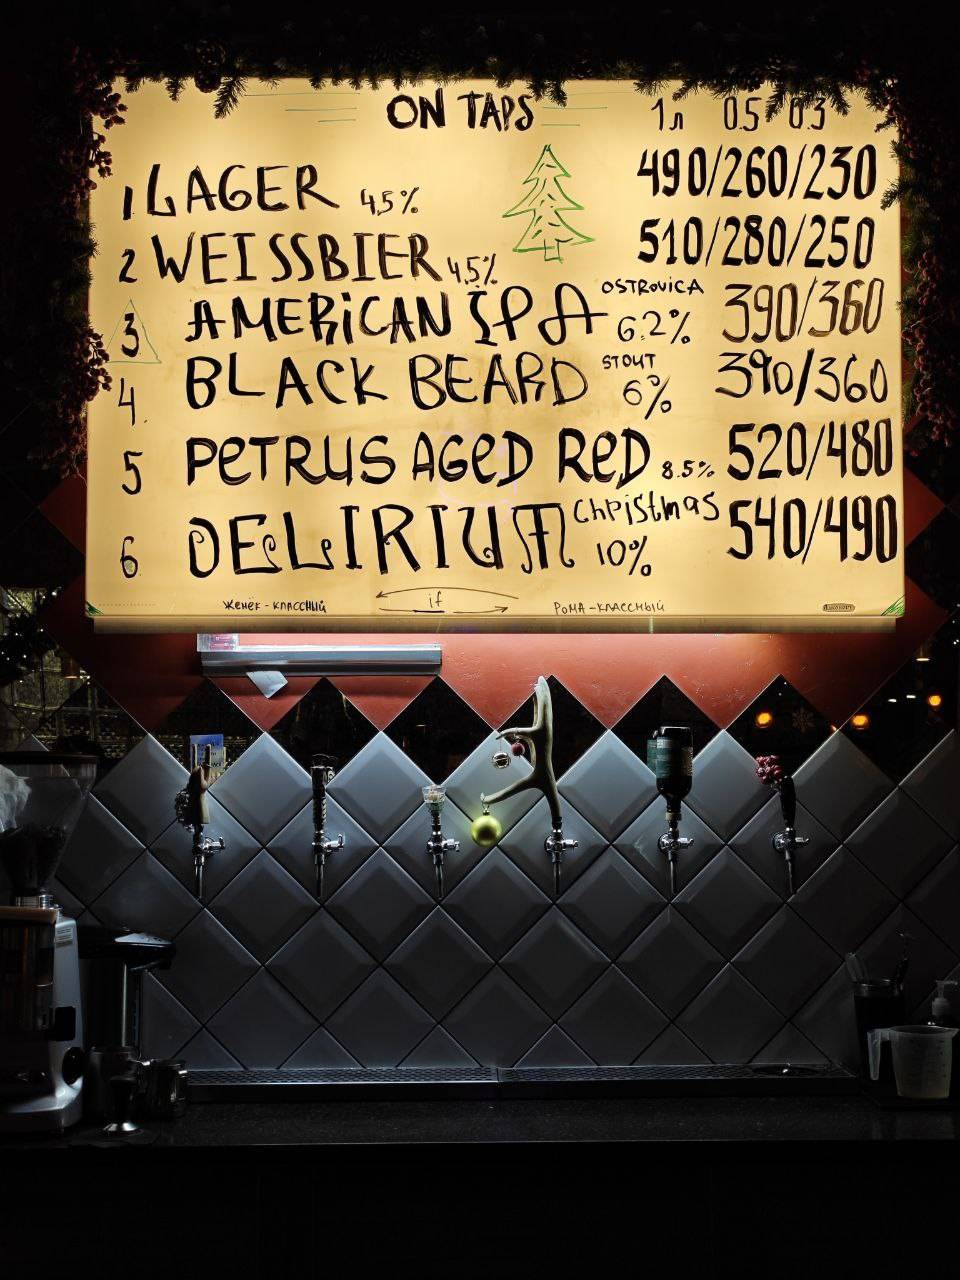 ON TAPS 1л 0.5 0.3
1 LAGER 4,5% 490/260/230
2 WEISSBIER 4,5% 510/280/250
3 AMERICAN IPA OSTROVICA 6.2% 390/360
4. BLACK BEARD STOUT 6% 390/360
5 PETRUS AGED RED 8.5% 520/480
6 DELIRIUM Christmas 10% 540/490
ЖЕНЁК - КЛАССНЫЙ if РОМА - КЛАССНЫЙ